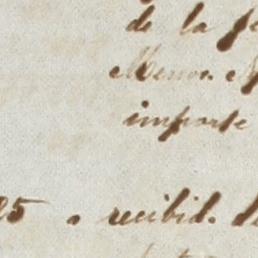 de la
Menor.
importe
25. recibid.